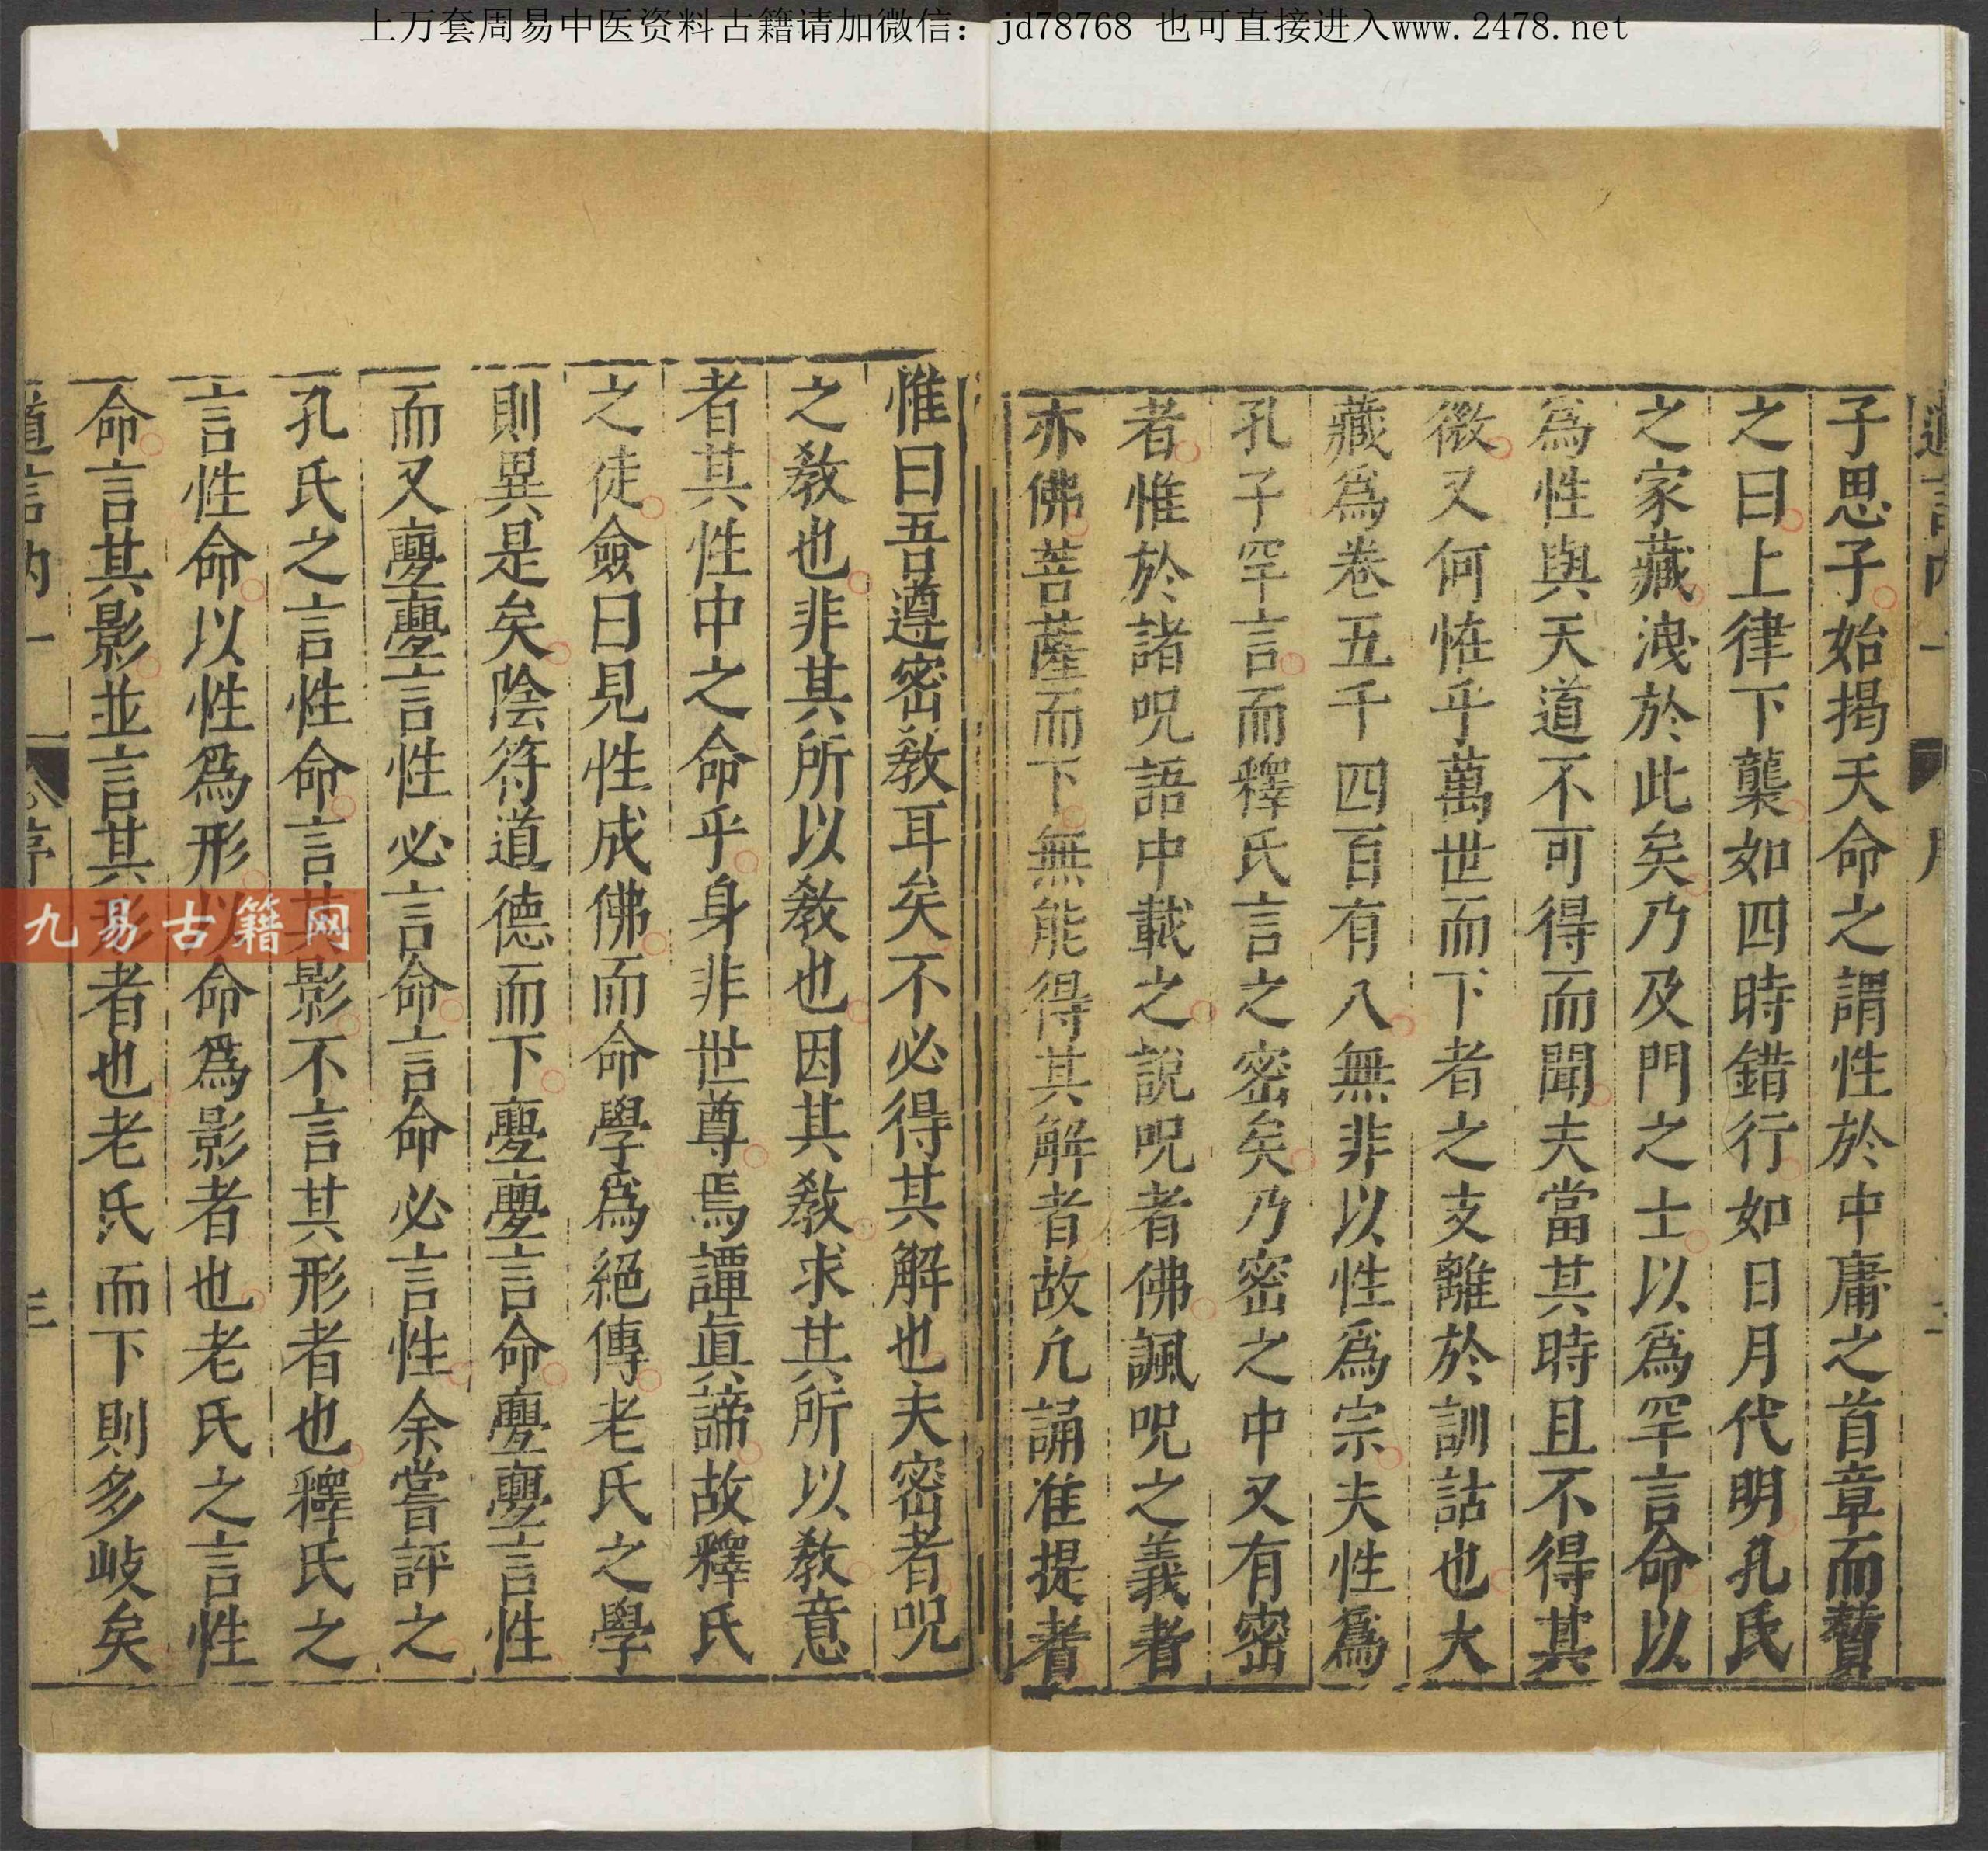 上万套周易中医资料古籍请加微信：jd78768 也可直接进入www.2478.net
子思子始揭天命之謂性於中庸之首章而贊
之曰上律下襲如四時錯行如日月代明孔氏
之家藏洩於此矣乃及門之士以爲罕言命以
爲性與天道不可得而聞夫當其時且不得其
微又何恠乎萬世而下者之支離於訓詁也大
藏爲卷五千四百有八無非以性爲宗夫性爲
孔子罕言而釋氏言之密矣乃密之中又有密
者惟於諸呪語中載之說呪者佛諷呪之義者
亦佛菩薩而下無能得其解者故凡誦准提者
惟曰吾遵密敎耳矣不必得其解也夫密者呪
之敎也非其所以敎也因其敎求其所以敎意
者其性中之命乎身非世尊焉譚眞諦故釋氏
之徒僉曰見性成佛而命學爲絕傳老氏之學
則異是矣陰符道德而下亹亹言命亹亹言性
而又亹亹言性必言命言命必言性余嘗評之
孔氏之言性命言其影不言其形者也釋氏之
言性命以性爲形以命爲影者也老氏之言性
命言其影並言其形者也老氏而下則多岐矣
道言内 一 序 三
九易古籍网